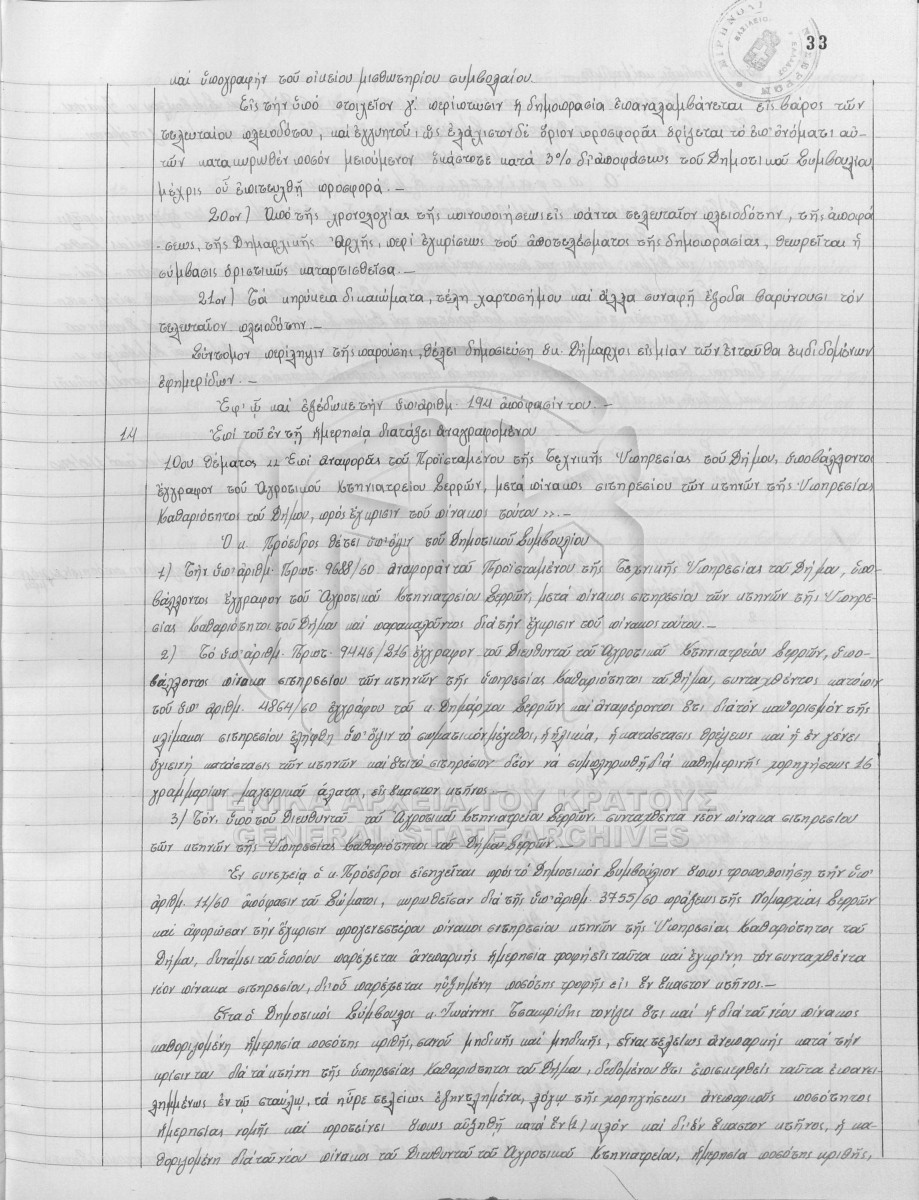 33
καί ὑπογραφήν τοῦ οἰκείου μισθωτηρίου συμβολαίου.
Εἰς τήν ὑπό στοιχεῖον γ' περίπτωσιν ἡ δημοπρασία ἐπαναλαμβάνεται εἰς βάρος τῶν
τελευταίου πλειοδότου, καί ἐγγυητοῦ, ὡς ἐλάχιστον δέ ὅριον προσφορᾶς ὁρίζεται τό ἐπ' ὀνόματι αὐ-
τῶν κατακυρωθέν ποσόν μειούμενον ἑκάστοτε κατά 3% δι' ἀποφάσεως τοῦ Δημοτικοῦ Συμβουλίου
μέχρις οὗ ἐπιτευχθῇ προσφορά.—
20ον) Ἀπό τῆς χρονολογίας τῆς κοινοποιήσεως εἰς πάντα τελευταῖον πλειοδότην, τῆς ἀποφά
-σεως, τῆς Δημαρχικῆς Ἀρχῆς, περί ἐγκρίσεως τοῦ ἀποτελέσματος τῆς δημοπρασίας, θεωρεῖται ἡ
σύμβασις ὁριστικῶς καταρτισθεῖσα.—
21ον) Τά κηρύκεια δικαιώματα, τέλη χαρτοσήμου καί ἄλλα συναφῆ ἔξοδα βαρύνουσι τόν
τελευταῖον πλειοδότην.—
Σύντομον περίληψιν τῆς παρούσης, θέλει δημοσιεύσῃ ὁ κ. Δήμαρχος εἰς μίαν τῶν ἐνταῦθα ἐκδιδομένων
ἐφημερίδων.—
Ἐφ' ᾧ καί ἐξέδωκε τήν ὑπ' ἀριθμ. 194 ἀπόφασίν του.—
14 Ἐπί τοῦ ἐν τῇ ἡμερησίᾳ διατάξει ἀναγραφομένου
10ου θέματος « Ἐπί ἀναφορᾶς τοῦ Προϊσταμένου τῆς Τεχνικῆς Ὑπηρεσίας τοῦ Δήμου, ὑποβάλλοντος
ἔγγραφον τοῦ Ἀγροτικοῦ Κτηνιατρείου Σερρῶν, μετά πίνακος σιτηρεσίου τῶν κτηνῶν τῆς Ὑπηρεσίας
Καθαριότητος τοῦ Δήμου, πρός ἔγκρισιν τοῦ πίνακος τούτου ».—
Ὁ κ. Πρόεδρος θέτει ὑπ' ὄψιν τοῦ Δημοτικοῦ Συμβουλίου
1) Τήν ὑπ' ἀριθμ. πρωτ. 9688/60 ἀναφοράν τοῦ Προϊσταμένου τῆς Τεχνικῆς Ὑπηρεσίας τοῦ Δήμου, ὑπο-
βάλλοντος ἔγγραφον τοῦ Ἀγροτικοῦ Κτηνιατρείου Σερρῶν, μετά πίνακος σιτηρεσίου τῶν κτηνῶν τῆς Ὑπηρε-
σίας Καθαριότητος τοῦ Δήμου καί παρακαλοῦντος διά τήν ἔγκρισιν τοῦ πίνακος τούτου.—
2) Τό ὑπ' ἀριθμ. Πρωτ. 9446/216 ἔγγραφον τοῦ Διευθυντοῦ τοῦ Ἀγροτικοῦ Κτηνιατρείου Σερρῶν, ὑπο-
βάλλοντος πίνακα σιτηρεσίου τῶν κτηνῶν τῆς ὑπηρεσίας Καθαριότητος τοῦ Δήμου, συνταχθέντος κατόπιν
τοῦ ὑπ' ἀριθμ. 4864/60 ἐγγράφου τοῦ κ. Δημάρχου Σερρῶν καί ἀναφέροντος ὅτι διά τόν καθορισμόν τῆς
κλίμακος σιτηρεσίου ἐλήφθη ὑπ' ὄψιν τό σωματικόν μέγεθος, ἡ ἡλικία, ἡ κατάστασις θρέψεως καί ἡ ἐν γένει
ὑγιεινή κατάστασις τῶν κτηνῶν καί ὅτι τό σιτηρέσιον δέον νά συμπληρωθῇ διά καθημερινῆς χορηγήσεως 16
γραμμαρίων μαγειρικοῦ ἅλατος, εἰς ἕκαστον κτῆνος.—
ΓΕΝΙΚΑ ΑΡΧΕΙΑ ΤΟΥ ΚΡΑΤΟΥΣ
3) Τόν, ὑπό τοῦ Διευθυντοῦ τοῦ Ἀγροτικοῦ Κτηνιατρείου Σερρῶν, συνταχθέντα νέον πίνακα σιτηρεσίου
GENERAL STATE ARCHIVES
τῶν κτηνῶν τῆς Ὑπηρεσίας Καθαριότητος τοῦ Δήμου Σερρῶν.—
Ἐν συνεχείᾳ ὁ κ. Πρόεδρος εἰσηγεῖται πρός τό Δημοτικόν Συμβούλιον ὅπως τροποποιήσῃ τήν ὑπ'
ἀριθμ. 11/60 ἀπόφασιν τοῦ Σώματος, κυρωθεῖσαν διά τῆς ὑπ' ἀριθμ. 3755/60 πράξεως τῆς Νομαρχίας Σερρῶν
καί ἀφορῶσαν τήν ἔγκρισιν προγενεστέρου πίνακος σιτηρεσίου κτηνῶν τῆς Ὑπηρεσίας Καθαριότητος τοῦ
Δήμου, δυνάμει τοῦ ὁποίου παρέχεται ἀνεπαρκής ἡμερησία τροφή εἰς ταῦτα καί ἐγκρίνῃ τόν συνταχθέντα
νέον πίνακα σιτηρεσίου, δι' οὗ παρέχεται ηὐξημένη ποσότης τροφῆς εἰς ἕν ἕκαστον κτῆνος.—
Εἶτα ὁ Δημοτικός Σύμβουλος κ. Ἰωάννης Τσακιρίδης τονίζει ὅτι καί ἡ διά τοῦ νέου πίνακος
καθοριζομένη ἡμερησία ποσότης κριθῆς, σανοῦ μηδικῆς καί μηδικῆς, εἶναι τελείως ἀνεπαρκής κατά τήν
κρίσιν του διά τά κτήνη τῆς ὑπηρεσίας Καθαριότητος τοῦ Δήμου, δεδομένου ὅτι ἐπισκεφθείς ταῦτα ἐπανει-
λημμένως ἐν τῷ σταύλῳ, τά ηὗρε τελείως ἐξηντλημένα, λόγῳ τῆς χορηγήσεως ἀνεπαρκοῦς ποσότητος
ἡμερησίας νομῆς καί προτείνει ὅπως αὐξηθῇ κατά ἕν (1) κιλόν καί δι' ἕν ἕκαστον κτῆνος, ἡ κα-
θοριζομένη διά τοῦ νέου πίνακος τοῦ Διευθυντοῦ τοῦ Ἀγροτικοῦ Κτηνιατρείου, ἡμερησία ποσότης κριθῆς,